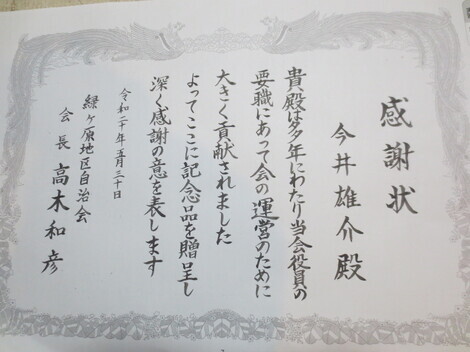 感謝状
今井雄介殿
貴殿は多年にわたり当会役員の
要職にあって会の運営のために
大きく貢献されました
よってここに記念品を贈呈し
深く感謝の意を表します
令和二十年五月三十日
緑ヶ原地区自治会
会長 高木和彦